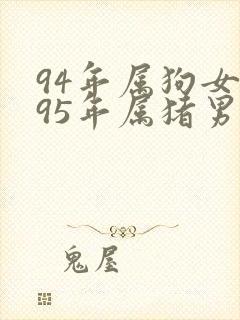 94年属狗女
95年属猪男
鬼屋